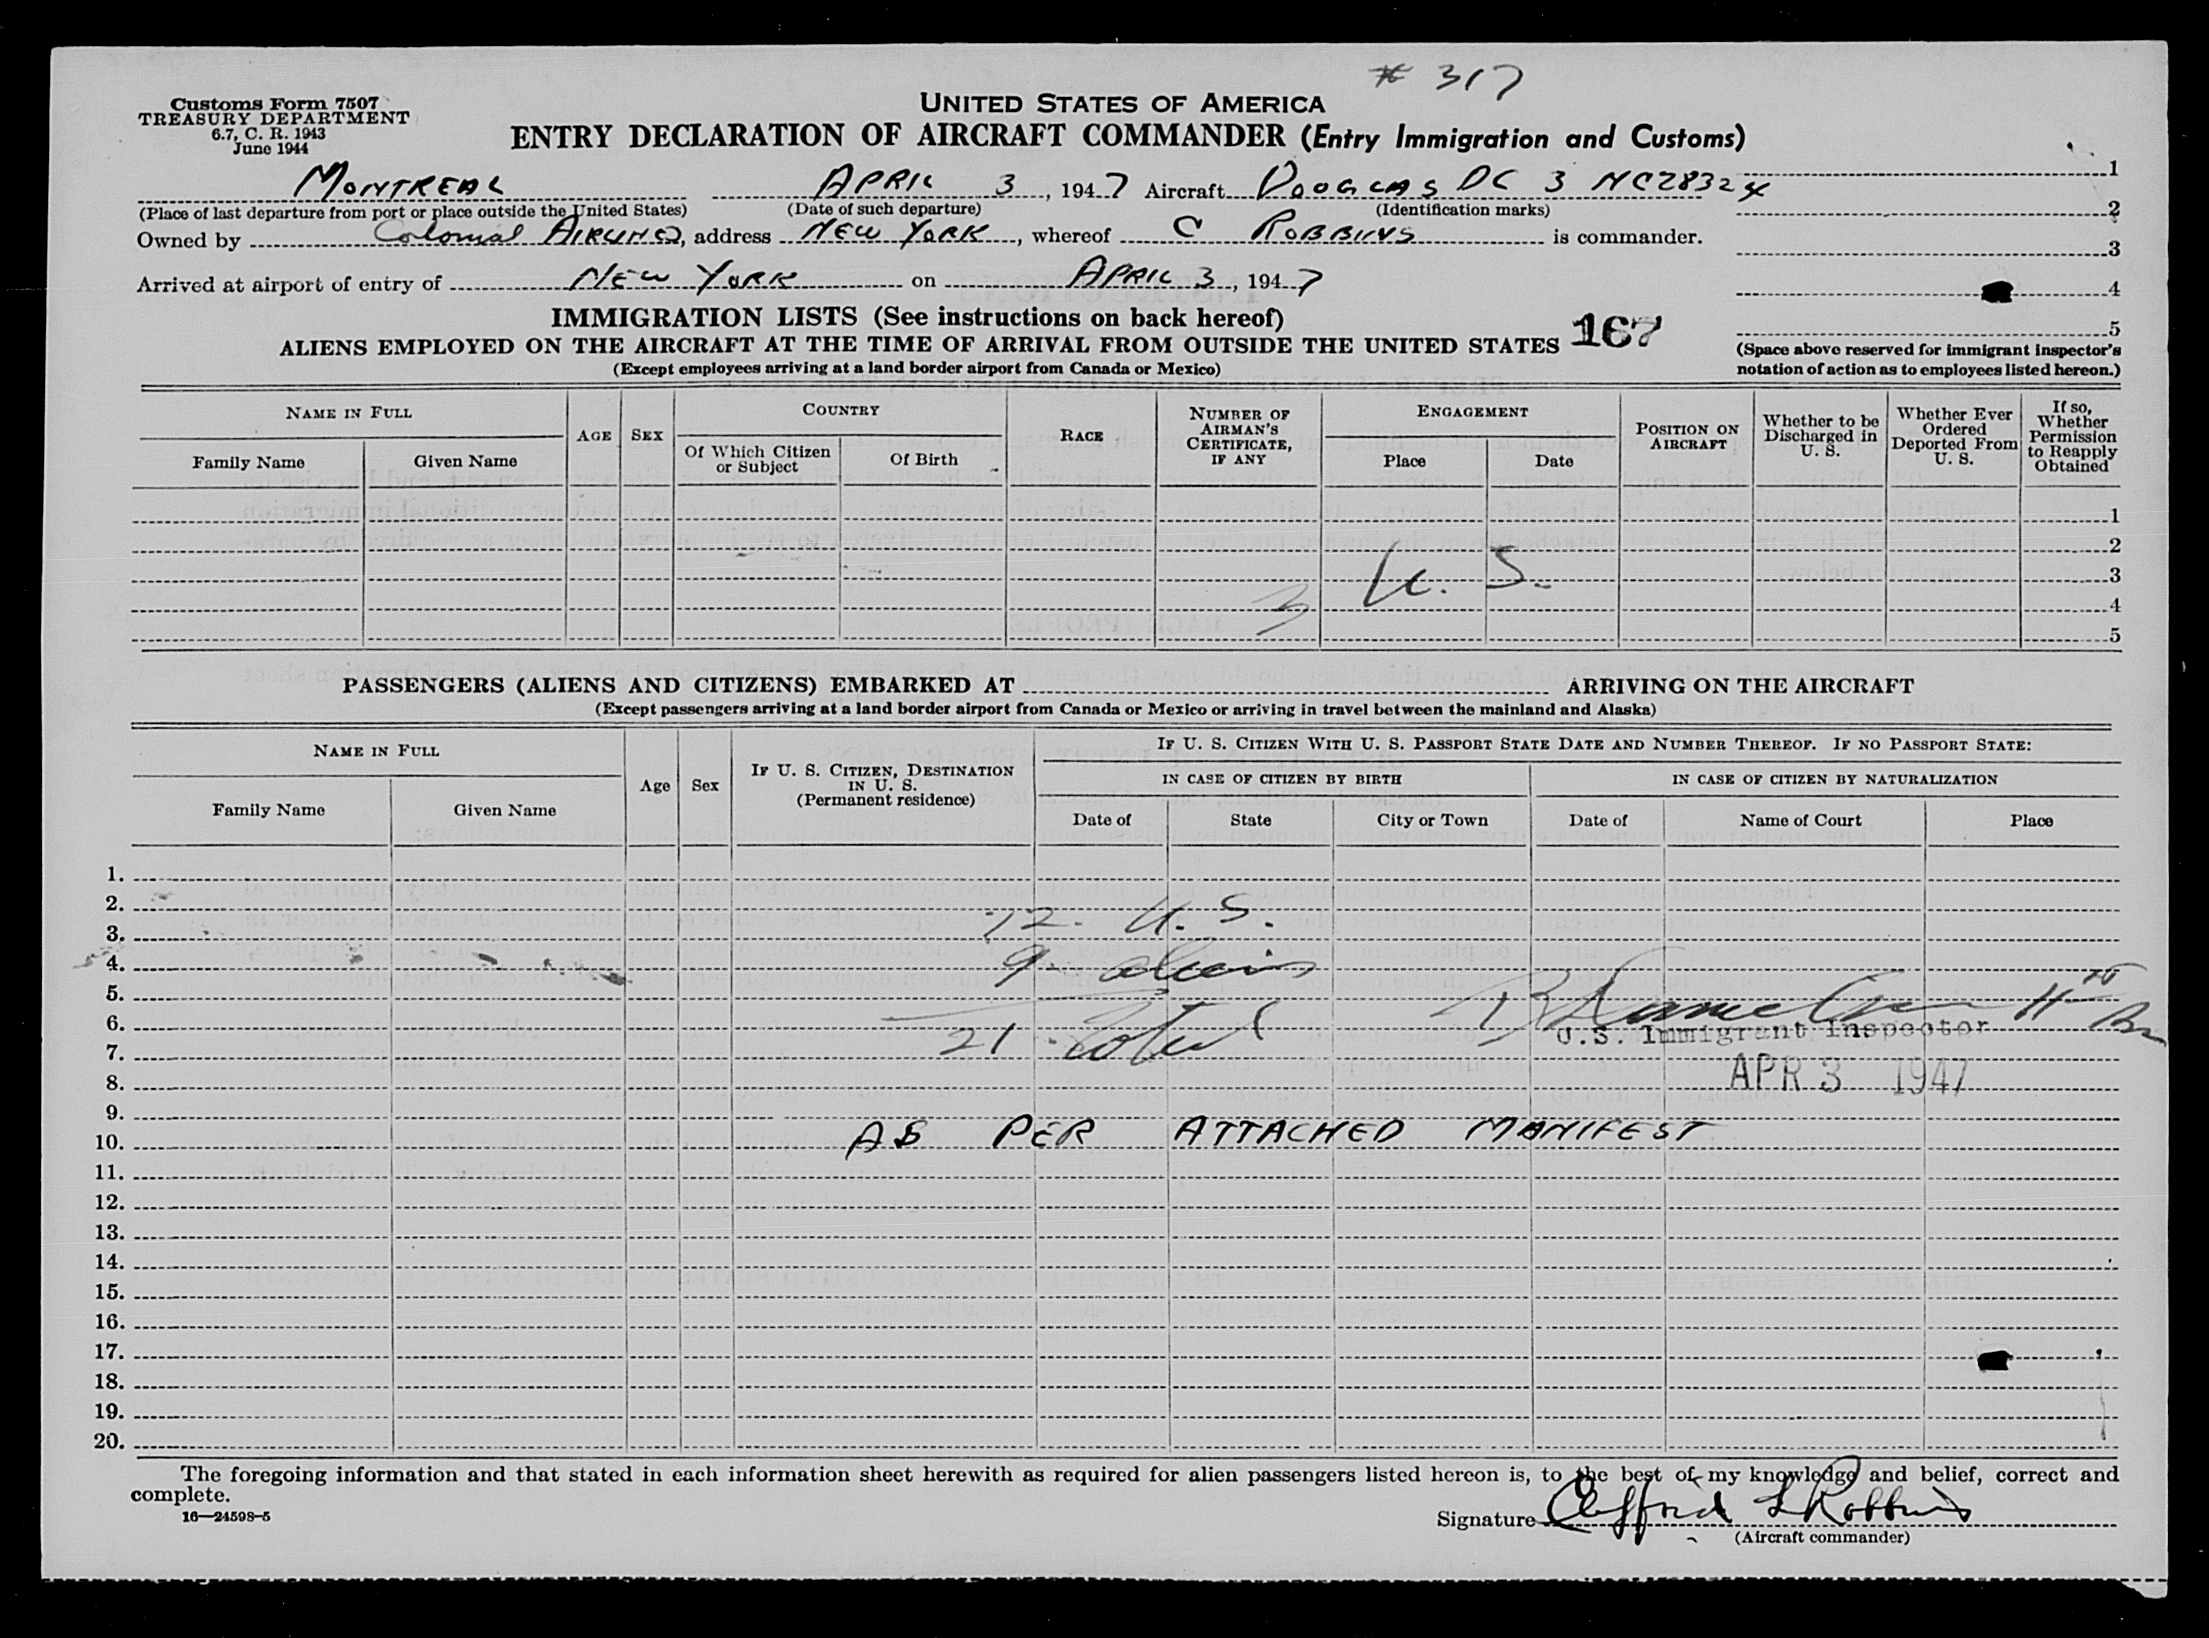 # 317
Customs Form 7507
TREASURY DEPARTMENT
6.7, C. R. 1943
June 1944
UNITED STATES OF AMERICA
ENTRY DECLARATION OF AIRCRAFT COMMANDER (Entry Immigration and Customs)
MONTREAL APRIL 3, 1947 Aircraft DOUGLAS DC 3 NC28324
(Place of last departure from port or place outside the United States) (Date of such departure) (Identification marks)
Owned by Colonial AIRLINES, address NEW YORK, whereof C ROBBINS is commander.
Arrived at airport of entry of NEW YORK on APRIL 3, 1947
1
2
3
4
5
(Space above reserved for immigrant inspector's
notation of action as to employees listed hereon.)
IMMIGRATION LISTS (See instructions on back hereof)
ALIENS EMPLOYED ON THE AIRCRAFT AT THE TIME OF ARRIVAL FROM OUTSIDE THE UNITED STATES 167
(Except employees arriving at a land border airport from Canada or Mexico)
NAME IN FULL
Family Name Given Name
AGE SEX
COUNTRY
Of Which Citizen or Subject Of Birth
RACE
NUMBER OF AIRMAN'S CERTIFICATE, IF ANY
ENGAGEMENT
Place Date
POSITION ON AIRCRAFT
Whether to be Discharged in U. S.
Whether Ever Ordered Deported From U. S.
If so, Whether Permission to Reapply Obtained
1
2
3
4
5
3 U. S.
PASSENGERS (ALIENS AND CITIZENS) EMBARKED AT ARRIVING ON THE AIRCRAFT
(Except passengers arriving at a land border airport from Canada or Mexico or arriving in travel between the mainland and Alaska)
NAME IN FULL
Family Name Given Name
Age Sex
IF U. S. CITIZEN, DESTINATION IN U. S. (Permanent residence)
IF U. S. CITIZEN WITH U. S. PASSPORT STATE DATE AND NUMBER THEREOF. IF NO PASSPORT STATE:
IN CASE OF CITIZEN BY BIRTH IN CASE OF CITIZEN BY NATURALIZATION
Date of State City or Town Date of Name of Court Place
1.
2.
3. 12. U. S.
4. 9 aliens
5.
6.
7. 21 Total U.S. Immigrant Inspector
8. APR 3 1947
9.
10. AS PER ATTACHED MANIFEST
11.
12.
13.
14.
15.
16.
17.
18.
19.
20.
The foregoing information and that stated in each information sheet herewith as required for alien passengers listed hereon is, to the best of my knowledge and belief, correct and
complete.
16—24598-5
Signature Clifford L Robbins
(Aircraft commander)